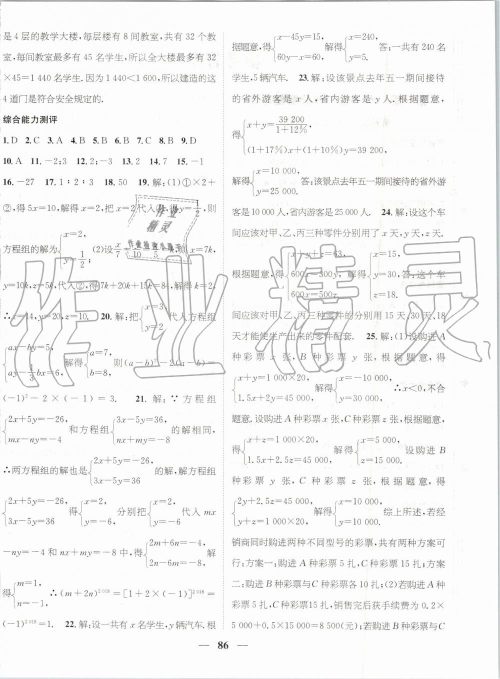 是 4 层的教学大楼,每层有 8 间教室,共有 32 个
教室,每间教室最多有 45 名学生,所以全大楼最多有 32
×45=1 440 名学生,因为 1 440<1 600,所以建造的这
4 道门是符合安全规定的.
综合能力测评
1.D 2.C 3.A 4.B 5.B 6.C 7.B 8.B 9.D
10.A 11.-2;3 12.2 13.3 14.7 15.-1
16.-27 17.1∶2∶3 18.50 19.解:(1)①×2+
②,得 5x=10,解得 x=2.
方程组的解为
20.解:把
代入方程组
解得
(-1)²-2×(-1)=3. 21.解:∵方程组
2x+5y=-26,
mx-ny=-4
和方程组
3x-5y=36,
nx+my=-8
的解相同,
∴两方程组的解也是
2x+5y=-26,
3x-5y=36
的解.解方程组
2x+5y=-26,
3x-5y=36
得
x=2,
y=-6.
分别把
x=2,
y=-6
代入 mx
-ny=-4 和 nx+my=-8 中,得
2m+6n=-4,
2n-6m=-8.
解
得
m=1,
n=-1.
(-1)²⁰¹⁸=1. 22.解:设一共有 x 名学生,y 辆汽车.根
据题意,得
x-45y=15,
60y-x=60.
解得
x=240,
y=5.
答:一共有 240 名
学生,5 辆汽车. 23.解:设该景点去年五一期间接待
的省外游客是 x 人,省内游客是 y 人.根据题意,
得
(1+17%)x+(1+10%)y=39 200,
解得
x=10 000,
y=25 000.
答:该景点去年五一期间接待的省外游
客是 10 000 人,省内游客是 25 000 人. 24.解:设这个车
间应该对甲、乙、丙三种零件分别用了 x 天,y 天,z 天.
解得
间应该对甲、乙、丙三种零件分别用 15 天、30 天、18
天才能使生产出来的零件配套. 25.解:(1)设购进 A
种彩票 x 张,B 种彩票 y 张,根据题意,得
x+y=1 000×20,
1.5x+2y=45 000,
解得
x=-10 000,
y=30 000.
∴x<0,不合
题意.设购进 A 种彩票 x 张,C 种彩票 z 张,根据题意,
得
x+z=1 000×20,
1.5x+2.5z=45 000,
解得
x=5 000,
z=15 000.
设购进 B
种彩票 y 张,C 种彩票 z 张,根据题意,得
2y+2.5z=45 000,
解得
y=10 000,
z=10 000.
综上所述,若经
销商同时购进两种不同型号的彩票,共有两种方案可
行:方案一:购进 B 种彩票与 C 种彩票各 10 扎;方案
二:购进 A 种彩票 5 扎,C 种彩票 15 扎;(2)若购进 A 种
彩票 5 扎,C 种彩票 15 扎,销售完后获手续费为 0.2×
5 000+0.5×15 000=8 500(元);若购进 B 种彩票与 C
86
作业精灵